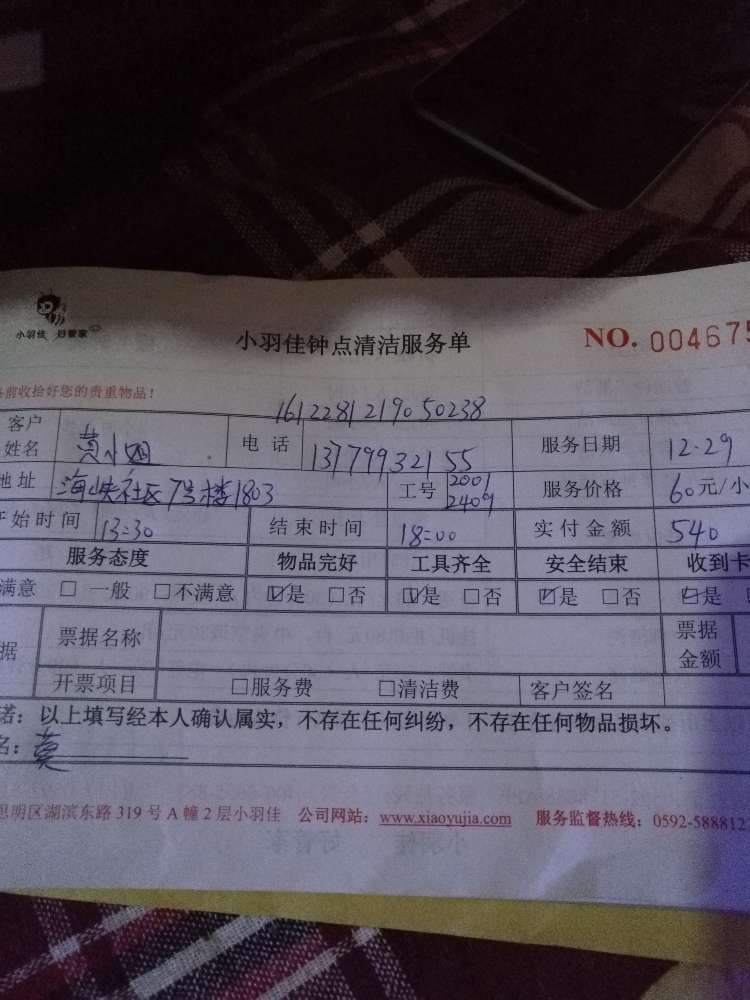 小羽佳 好管家
小羽佳钟点清洁服务单
NO. 004675
前收拾好您的贵重物品!
1612281219050238
客户姓名 黄小姐 电话 13779932155 服务日期 12.29
地址 海峡社区7号楼1803 工号 2001 2409 服务价格 60元/小
开始时间 13:30 结束时间 18:00 实付金额 540
服务态度 物品完好 工具齐全 安全结束 收到卡
满意 □ 一般 □不满意 ☑是 □否 ☑是 □否 ☑是 □否 ☑是
据 票据名称 票据金额
开票项目 □服务费 □清洁费 客户签名
诺:以上填写经本人确认属实,不存在任何纠纷,不存在任何物品损坏。
名:
思明区湖滨东路319号A幢2层小羽佳 公司网站:www.xiaoyujia.com 服务监督热线:0592-588812